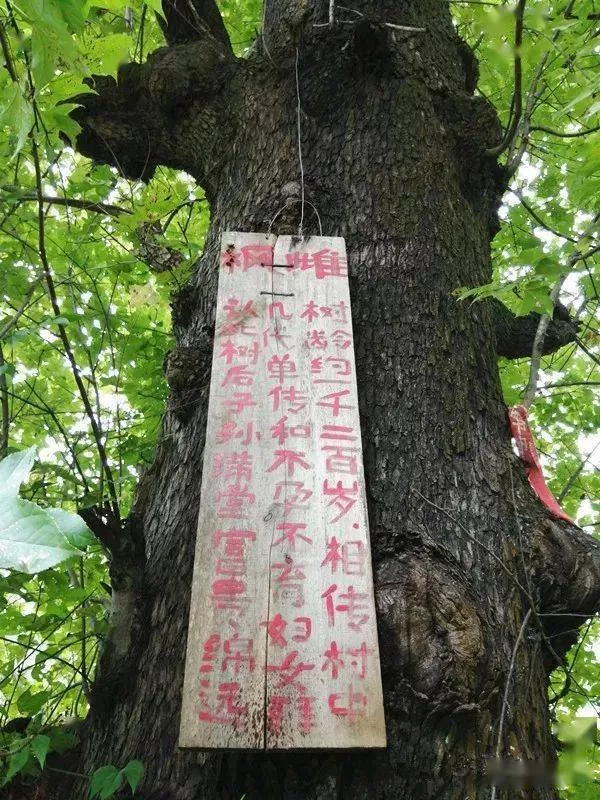 雌二枫
树龄约一千二百岁.相传村中
几代单传和不孕不育妇女拜
认此树后子孙满堂富贵绵远